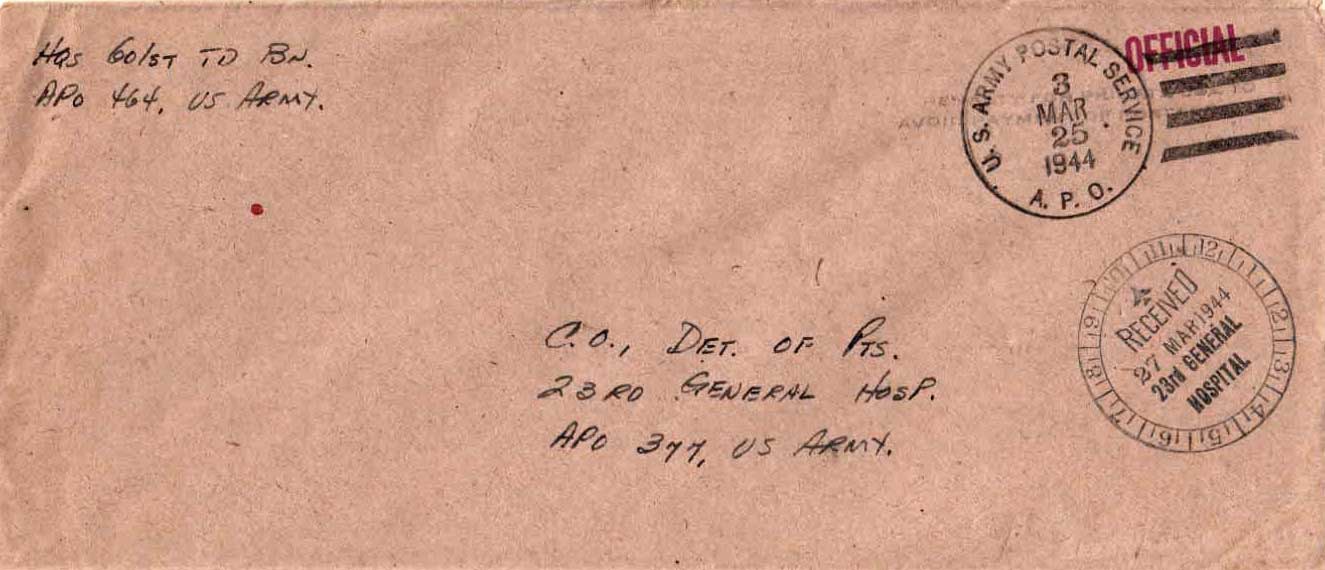 HQs 601ST TD BN.
APO 464, US ARMY.
OFFICIAL
U.S. ARMY POSTAL SERVICE
3
MAR
25
1944
A. P. O.
11 12 1 2 3 4 5 6 7 8 9 10
RECEIVED
27 MAR 1944
23rd GENERAL
HOSPITAL
C.O., DET. OF PTS.
23RD GENERAL HOSP.
APO 377, US ARMY.